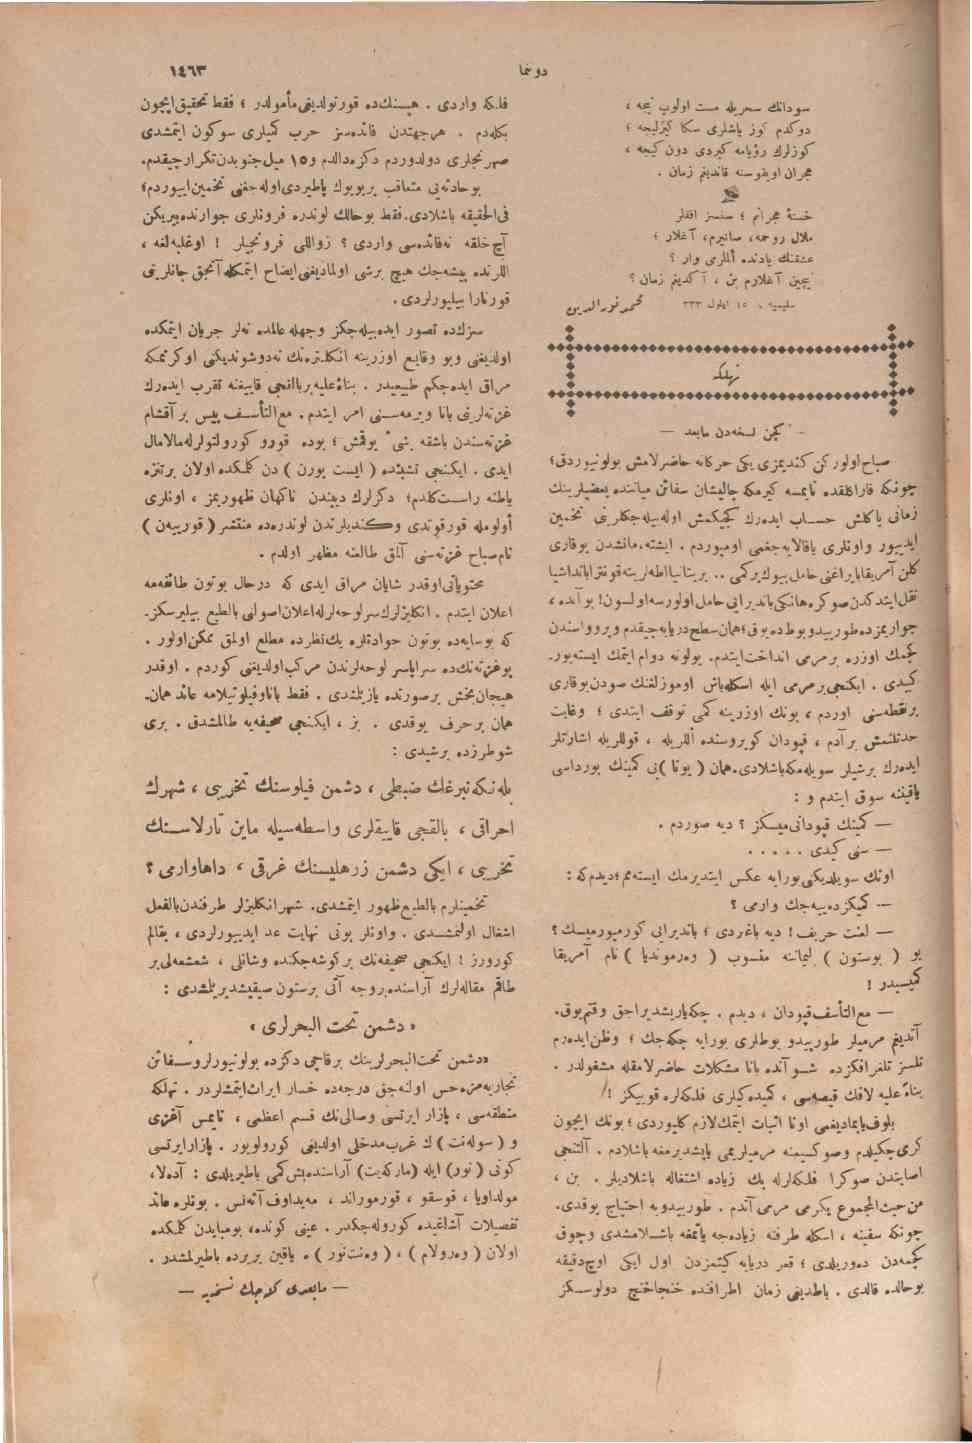 دونما
١٤٦٣
سودانك سحريله مست اولوب نيجه ،
دوكدم كوز ياشلرى سكا كيزليجه ؛
كوزلرك رؤيامه كيردى دون كيجه ،
هجران اويقوسنه قانديغم زمان .
خستهٔ هجرانم ؛ سنسز اقدلر
ملال روحمه ، صانيرم ، آغلار ؛
عشقنك يادنده ألملرمى وار ؟
نيچين آغلارم بن ، آكديغم زمان ؟
سليميه ، ١٥ ايلول ٣٣٣
محمد نورالدين
تهلكه
— كچن نسخه‌دن مابعد —
صباح اولوركن كنديمزى يكى حركاته حاضرلامش بولونيوردق؛
چونكه قارا كلقده تايمسه كيرمكه چاليشان سفائن مياننده بعضيلرينك
زمانى ياكلش حساب ايده‌رك كجيكمش اوله‌بيله‌جكلرنى تخمين
ايدييور واونلرى ياقالايه‌جغمى اوميوردم . ايشته، مانشدن يوقارى
كلن آمريقا بايراغنى حامل بيوك بر كمى .. بريتانيا اطه‌لرينه قونترا باند اشيا
نقل ايتدكدن صوكره هانكى بانديرايى حامل اولورسه اولسون! بو آده ،
جواريمزده طورپيدو بوط ده يوق؛ همان سطح دريايه چيقدم و پروواسندن
كچمك اوزره بر مرمى انداخت ايتدم. يولونه دوام ايتمك ايسته‌يور.
كيدى . ايكنجى بر مرمى ايله اسكله باش اوموزلغنك صودن يوقارى
بر نقطه‌سنى اوردم ، بونك اوزرينه كمى توقف ايتدى ؛ وغايت
حدتلنمش بر آدم ، قپودان كوپروسنده أللريله ، قوللريله اشارتلر
ايده‌رك برشيلر سويله‌مكه باشلادى. همان ( يوتا ) يى كمينك بورداسى
ياقيننه سوق ايتدم و :
— كمينك قپودانى ميسكز ؟ ديه صوردم .
— سنى كيدى . . . . .
اونك سويلديكنى بورايه عكس ايتديرمك ايسته‌مم؛ ديدم كه :
— كميكزده ييه‌جك وارمى ؟
— لعنت حريف! ديه باغردى ؛ بانديرايى كورميورميسك ؟
بو ( بوستون ) ليماننه منسوب ( وه‌رموندیا ) نام آمريقا
كميسيدر !
— مع التأسف قپودان ، ديدم . چكه ياريشديراجق وقتم يوق.
آتديغم مرميلر طورپيدو بوطلرى بورايه چكه‌جك ؛ وظن ايده‌رم
تلسز تلغرافكزده شو آنده بانا مشكلات حاضرلامقله مشغولدر .
بناءً عليه لافك قيصه‌سى ، كميده‌كيلرى فلكه‌لره قويكز !
بلوف ياپماديغمى اوكا اثبات ايتمك لازم كليوردى ؛ بونك ايچون
كرى چكيلدم وصو كسيمنه مرميلريمى ياپشديرمغه باشلادم . آلتنجى
اصابتدن صوكرا فلكه‌لرله پك زياده اشتغاله باشلاديلر . بن ،
من حيث المجموع يكرمى مرمى آتدم . طورپيدويه احتياج يوقدى.
چونكه سفينه ، اسكله طرفنه زياده‌جه ياتمغه باشلامشدى وچوق
كچمه‌دن ده‌وريلدى ؛ قعر دريايه كيتمزدن اول ايكى اوچ دقيقه
بوحالده قالدى . باطديغى زمان اطرافنده خنجاخنج دولو سكز
فلكه واردى . هپسنك ده قورتولديغى مأمولدر ؛ فقط تحقيق ايچون
بكله‌دم . هر جهتدن فائده‌سز حرب كميلرى سوكون ايتمشدى
صهرنجلرى دولدوردم دكزه دالدم و ١٥ ميل جنوبدن تكرار چيقدم.
بوحادثه‌يى متعاقب بر بويوك پاطيردى اوله‌جغنى تخمين ايييوردم؛
فى الحقيقه باشلادى. فقط بوحالك لوندره فرونلرى جوارنده بيريكن
آچ خلقه نه فائده‌سى واردى ؟ زواللى فرونجيلر ! اوغلبه‌لغه ،
اللرنده پيشه‌جك هيچ برشى اولماديغنى ايضاح ايتمكله آنجق جانلرينى
قورتارا بيليورلردى .
سزك ده تصور ايده‌بيله‌جكز وجهله عالمده نه‌لر جريان ايتمكده
اولديغنى وبو وقايع اوزرينه انكلتره‌نك نه دوشونديكنى اوكرنمكه
مراق ايده‌جكم طبيعيدر . بناءً عليه بر بالقجى قاييغنه تقرب ايده‌رك
غزته‌لرينى بانا ويرمه‌سنى امر ايتدم . مع التأسف پيس بر آقشام
غزته‌سندن باشقه بشى يوقمش ؛ بوده قورو كورولتولرله مالامال
ايدى . ايكنجى تشبثده ( ايست بورن ) دن كلمكده اولان بر تنزه
ياطنه راست كلدم؛ دكزلرك ديبندن ناكهان ظهوريمز ، اونلرى
أولومله قورقوندى وكنديلرندن لوندره‌ده منتشر ( قوريه‌ن )
نام صباح غزته‌سنى آلمق طالعنه مظهر اولدم .
محتوياتى اوقدر شايان مراق ايدى كه درحال بوتون طائفه‌مه
اعلان ايتدم . انكليزلرك سرلوحه‌لرله اعلان اصولنى بالطبع بيليرسكز.
كه بوسايه‌ده بوتون حوادثلره بك نظرده مطلع اولمق ممكن اولور .
بوغزته‌نك ده سراپاسر لوحه‌لرندن مركب اولديغنى كوردم . اوقدر
هيجان بخش بر صورتده يازيلمشدى . فقط بانا وفيلوتيلامه عائد همان.
همان بر حرف يوقدى . بز ، ايكنجى صحيفه‌يه طالمشدق . برى
شو طرزده برشيدى :
بله‌نكه‌نبرغك ضبطى ، دشمن فيلوسنك تخريبى ، شهرك
احراقى ، بالقجى قاييقلرى واسطه‌سيله ماين تارلاسنك
تخريبى ، ايكى دشمن زرهليسنك غرقى ، داها وارمى ؟
تخمينلرم بالطبع ظهور ايتمشدى. شهر انكليزلر طرفندن بالفعل
اشغال اولنمشدى . واونلر بونى نهايت عد ايدييورلردى ، بقالم
كورورز ! ايكنجى صحيفه‌نك بر كوشه‌جكنده وشانلى ، شعشعه‌لى بر
طاقم مقاله‌لرك آراسنده بروجه آتى بر ستون صيقيشديريلمشدى :
« دشمن تحت البحرلرى »
« دشمن تحت البحرلرينك بر قاچى دكزده بولونيورلر و سفائن
تجاريه‌مزه حس اولنه‌جق درجه‌ده خسار ايراث ايتمشلردر . تهلكه
منطقه‌سى ، پازار ايرتسى وصالى‌نك قسم اعظمى ، تايمس آغزى
و ( سوله‌نت ) ك غرب مدخلى اولديغى كورولويور . پازار ايرتسى
كونى ( نور ) ايله ( ماركه‌يت ) آراسنده بش كمى باطيريلدى : آده‌لا،
مولداويا ، قوسقو ، قورموراند ، مه‌يداوف آته‌نس . بونلره عائد
تفصيلات آشاغيده كوروله‌جكدر . عينى كونده، بومبايدن كلمكده
اولان ( وه‌رولام ) ، ( وه‌نت‌نور ) ه ياقين بر يرده باطيرلمشدر .
— مابعدى كله‌جك نسخه‌يه —